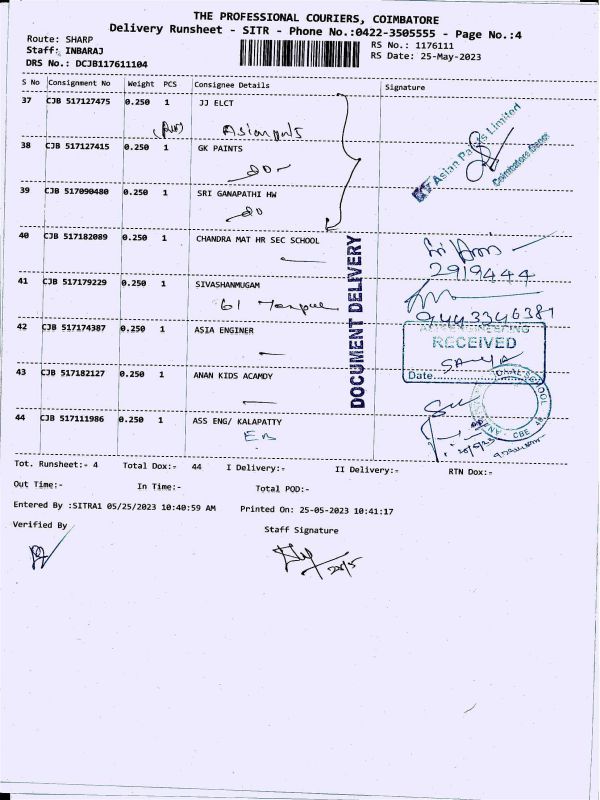 THE PROFESSIONAL COURIERS, COIMBATORE
Delivery Runsheet - SITR - Phone No.:0422-3505555 - Page No.:4
Route: SHARP
Staff: INBARAJ
DRS No.: DCJB117611104
RS No.: 1176111
RS Date: 25-May-2023
S No Consignment No Weight PCS Consignee Details Signature
37 CJB 517127475 0.250 1 JJ ELCT
38 CJB 517127415 0.250 1 GK PAINTS
39 CJB 517090480 0.250 1 SRI GANAPATHI HW
Asian Paints Limited
Coimbatore Depot
40 CJB 517182089 0.250 1 CHANDRA MAT HR SEC SCHOOL
2919444
41 CJB 517179229 0.250 1 SIVASHANMUGAM
9443346381
42 CJB 517174387 0.250 1 ASIA ENGINER
RECEIVED
Date
43 CJB 517182127 0.250 1 ANAN KIDS ACAMDY
44 CJB 517111986 0.250 1 ASS ENG/ KALAPATTY
EB
DOCUMENT DELIVERY
Tot. Runsheet:- 4 Total Dox:- 44 I Delivery:- II Delivery:- RTN Dox:-
Out Time:- In Time:- Total POD:-
Entered By :SITRA1 05/25/2023 10:40:59 AM Printed On: 25-05-2023 10:41:17
Verified By Staff Signature